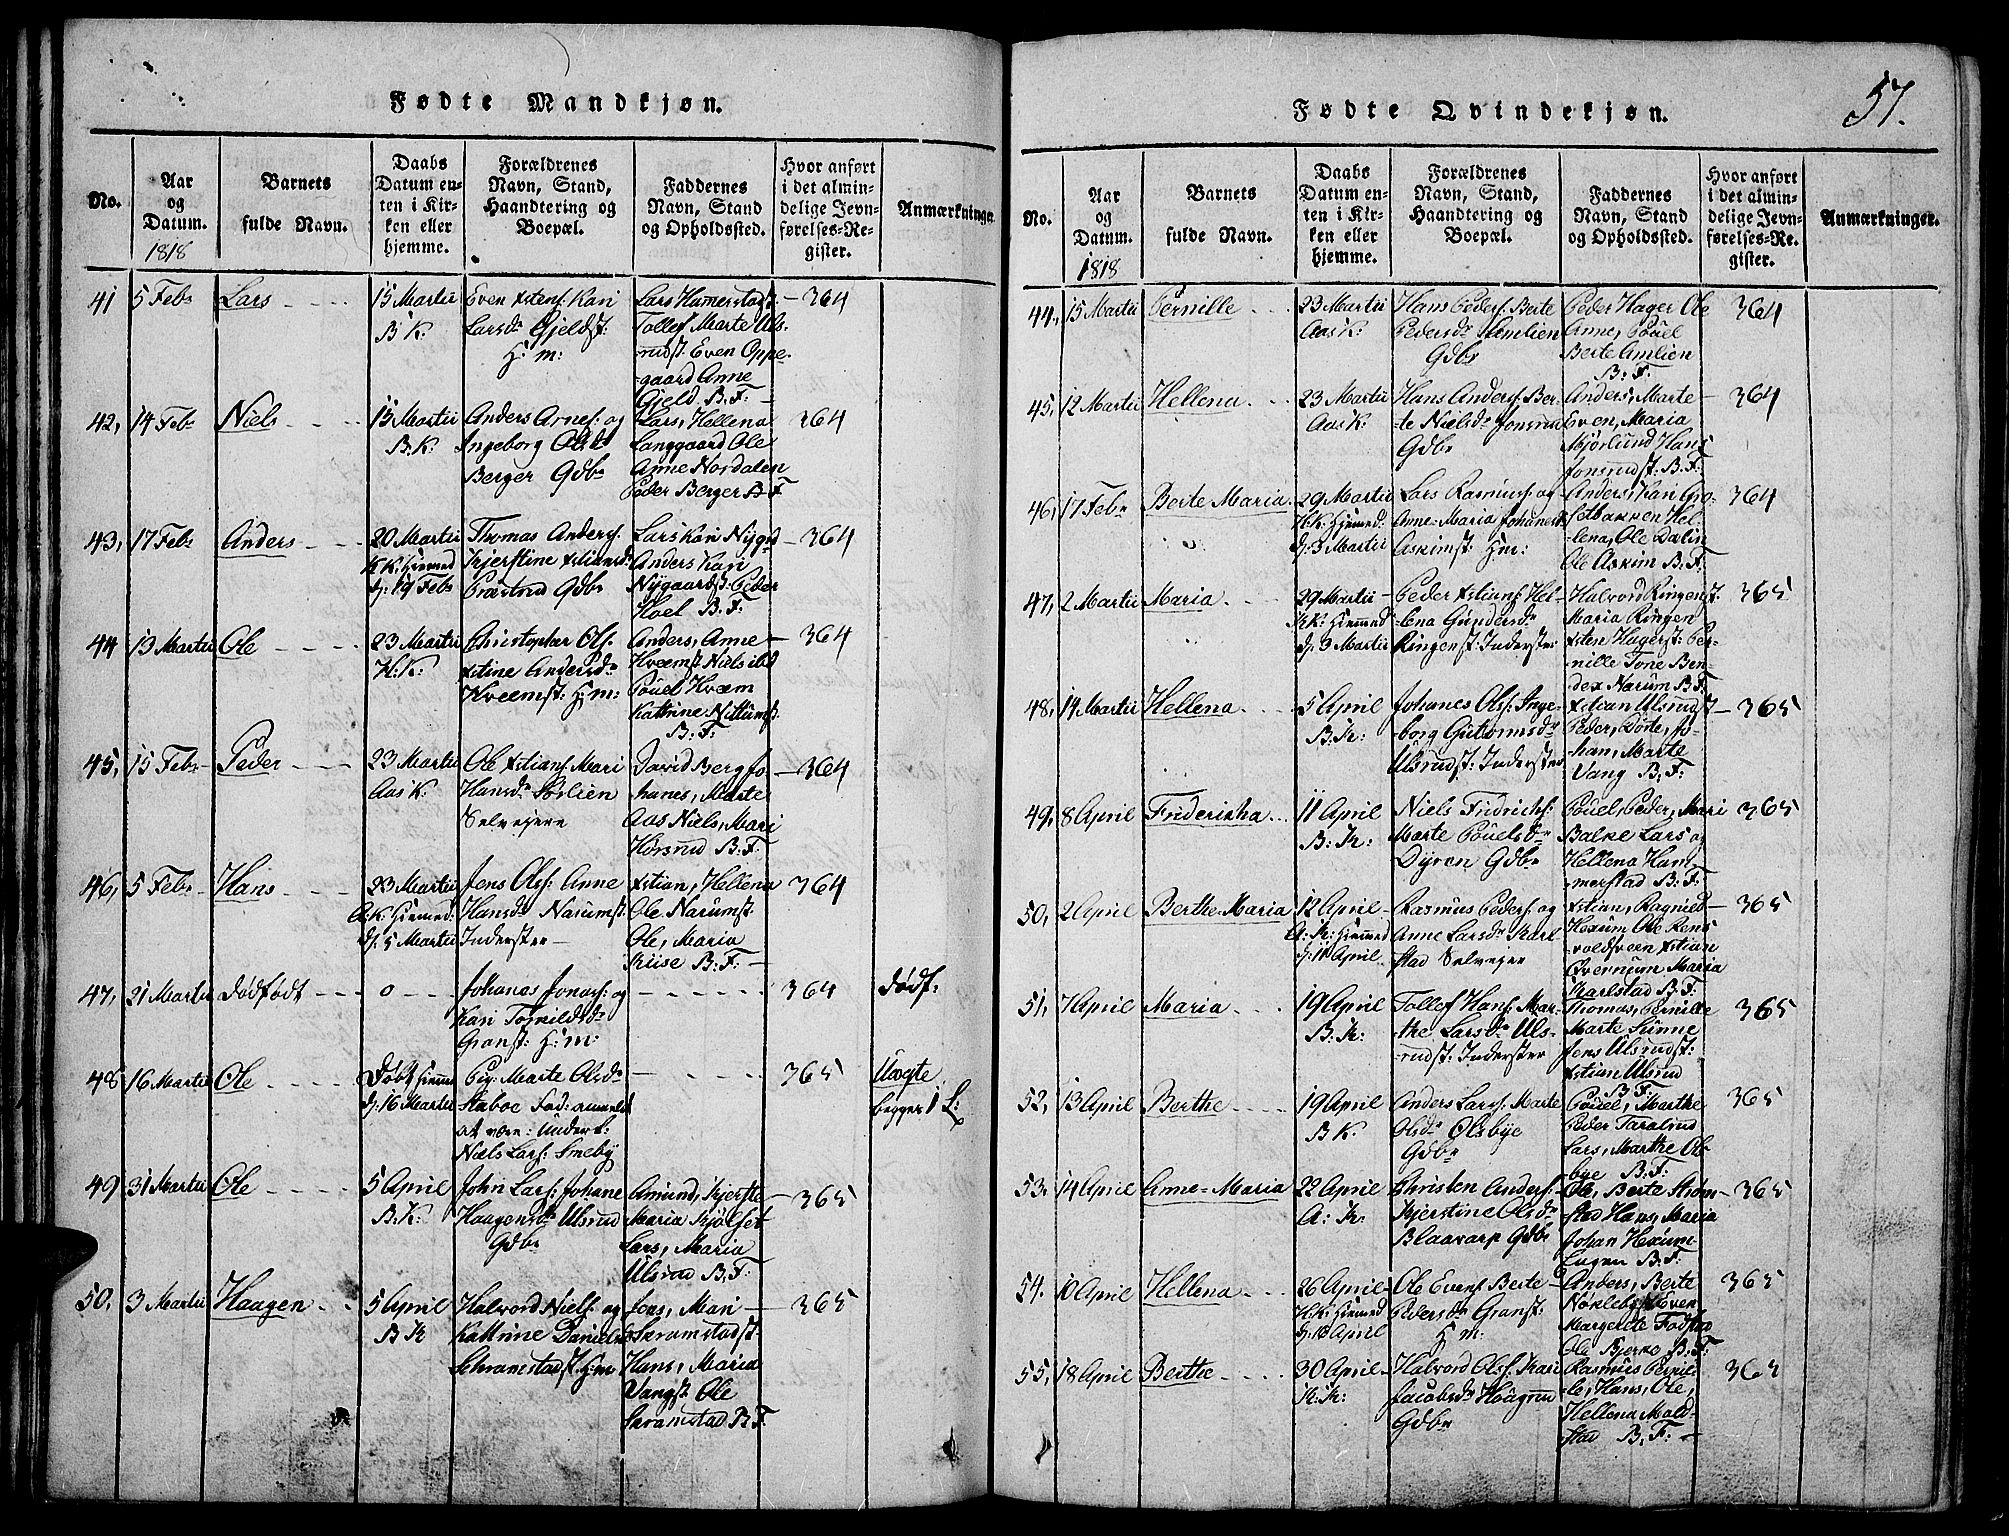 Fødte Mandkjøn.
No.
Aar
og
Datum.
1818
Barnets
fulde Navn.
Daabs
Datum en-
ten i Kir-
ken eller
hjemme.
Forældrenes
Navn, Stand,
Haandtering og
Boepæl.
Faddernes
Navn, Stand
og Opholdssted.
Hvor anført
i det almin-
delige Jevn-
førelses-Re-
gister.
Anmærkninger.
41
5 Febr
Lars
15 Martii
B K:
Even Xstens: Kari
Larsdr Gjeldst:
H: m:
Lars Hamerstadst:
Tollef Marte Uls-
-rudst: Even Oppe-
-gaard Anne
Gjeld. B. F.
364
42,
14 Febr
Niels
15 Martii
B. K:
Anders Arnes: og
Ingeborg Olsdr
Berger Gdbr
Lars, Hellena
Langgaard Ole
Anne Nordalen
Peder Berger B F
364
43,
17 Febr
Anders
20 Martii
K K: Hiemed:
d: 19 Febr
Thomas Anders:
Kjerstine Xtiansdr
Præstrud Gdbr
Lars Kari Nygrd
Anders Kari
Nygaardst: Peder
Hoel B. F:
364
44
13 Martii
Ole
23 Martii
H: K:
Christopher Ols:
Xstine Andersdr
Kveemst: H: m:
Anders, Anne
Kveemst Niels ibd
Pouel Kvæm
Kattrine Nittumst
B. F:
364
45,
15 Febr
Peder
23 Martii
Aas K:
Ole Xstians: Mari
Hansdr Sørlien
Selvejere
David Berg Jo-
hanes, Marte
Aas Niels, Mari
Hørsrud B: F:
364
46,
5 Febr
Hans
23 Martii
A: K: Hiemed:
d: 5 Martii
Jens Ols: Anne
Hansdr Narumst:
Inderster
Xstian, Hellena
Ole Narumst:
Ole, Maria
Kiise B: F:
364
47,
21 Martii
Dødfødt
o
Johanas Jonas: og
Kari Tomildsdr
Granst: H: m:
364
Dødf:
48
16 Martii
Ole
Døbt hiemme
d: 16 Martii
Pig: Marte Olsdr
Staboe Fad: anmeldt
at være: Under f:
Niels Lars: Smeby
365
Uægte
begges 1 L:
49
31 Martii
Ole
5 April
B. K:
John Lars: Johane
Haagensdr Ulsrud
Gdbr
Amund, Kjerste
Maria Kjølset
Lars, Maria
Ulsrud B. F:
365
50,
3 Martii
Haagen
5 April
B K
Halvord Niels: og
Kattrine Daniels
Schramstadst. H: m
Jons, Mari
Skramstadst
Hans, Maria
Vangst Ole
Skramstad B F.
365
57.
Fødte Qvindekjøn.
No.
Aar
og
Datum.
1818
Barnets
fulde Navn.
Daabs
Datum en-
ten i Kir-
ken eller
hjemme.
Forældrenes
Navn, Stand,
Haandtering og
Boepæl.
Faddernes
Navn, Stand
og Opholdssted.
Hvor anført
i det almin-
delige Jevn-
førelses-Re-
gister.
Anmærkninger.
44,
15 Martii
Pernille
23 Martii
Aas K:
Hans Peders: Berte
Pedersdr Hamlien
Gdbr
Peder Hager Ole
Anne, Pouel
Berte Amlien
B: F:
364
45,
12 Martii
Hellena
23 Martii
Aas K:
Hans Anders: Ber-
-te Nielsdr Jonsrud
Gdbr
Anders, Marte
Even, Maria
Mjørlund Hans
Jonsrudst: B. F:
364
46,
17 Febr
Berte Maria
29 Martii
H. K: Hjemed:
d: 3 Martii
Lars Rasmus: og
Anne-Maria Johanesdr
Askimst: H: m:
Anders, Kari Gro-
setbakken Hel-
lena, Ole Dalin
Ole Askim B. F:
364
47,
2 Martii
Maria
29 Martii
K K: Hiemed
d: 3 Martii
Peder Xstians: Hel-
lena Gundersdr
Ringenst: Inderster
Halvord Ringenst
Maria Ringen
Xsten Hagerst: Per-
nille Tone Ben-
dex Narum B. F:
365
48,
14 Martii
Hellena
5 April
B. K:
Johanes Ols: Inge-
borg Gutormsdr
Ulsrudst: Inderster
Xstian Ulsrudst
Peder, Dorte, Jo-
han, Marte
Vang B. F:
365
49,
8 April
Friderikha
11 April
B: K:
Niels Fridrichs:
Marte Pouelsdr
Dyren Gdbr
Pouel, Peder, Mari
Balke Lars og
Hellena Ham-
merstad B: F:
365
50,
2 April
Berthe-Maria
12 April
A: K: Hiemed
d: 11 April
Rasmus Peders: og
Anne Larsdr Karl
stad Selvejer
Xstian, Ragnild
Hexum Ole Rens
voldsveen Xstian
Øvernum Maria
Karlstad B. F:
365
51,
7 April
Maria
19 April
B. K:
Tollef Hans: Mar-
the Larsdr Uls-
-rudst: Inderster
Thomas, Pernille
Marte Sunne
Jens Ulsrudst:
Xstian Ulsrud
B F:
365
52,
13 April
Berthe
19 April
B K.
Anders Lars: Marte
Olsdr Olsbye
Gdbr
Pouel, Marthe
Peder Taralrud
Lars, Marthe Ols
bye B. F:
365
53.
14 April
Anne-Maria
22 April
A: K:
Christen Anders:
Kjerstine Olsdr
Blaavarp Gdbr
Ole, Berte Strøm-
stad Hans, Maria
Johan Hexum-
Eugen B. F:
365
54.
10 April
Hellena
26 April
H. K: Hiemed
d: 13 April
Ole Evens: Berte
Pedersdr Granst:
H: m:
Anders, Berte
Nøkleby Even
Margrete Fodstad
Ole Bjerke B. F:
365
55,
18 April
Berthe
30 April
K: K:
Halvord Ols: Kari
Jacobsdr Haagrud
Gdbr
Rasmus Pernil-
le, Hans, Ole,
Hellena Mold-
stad B. F:
365